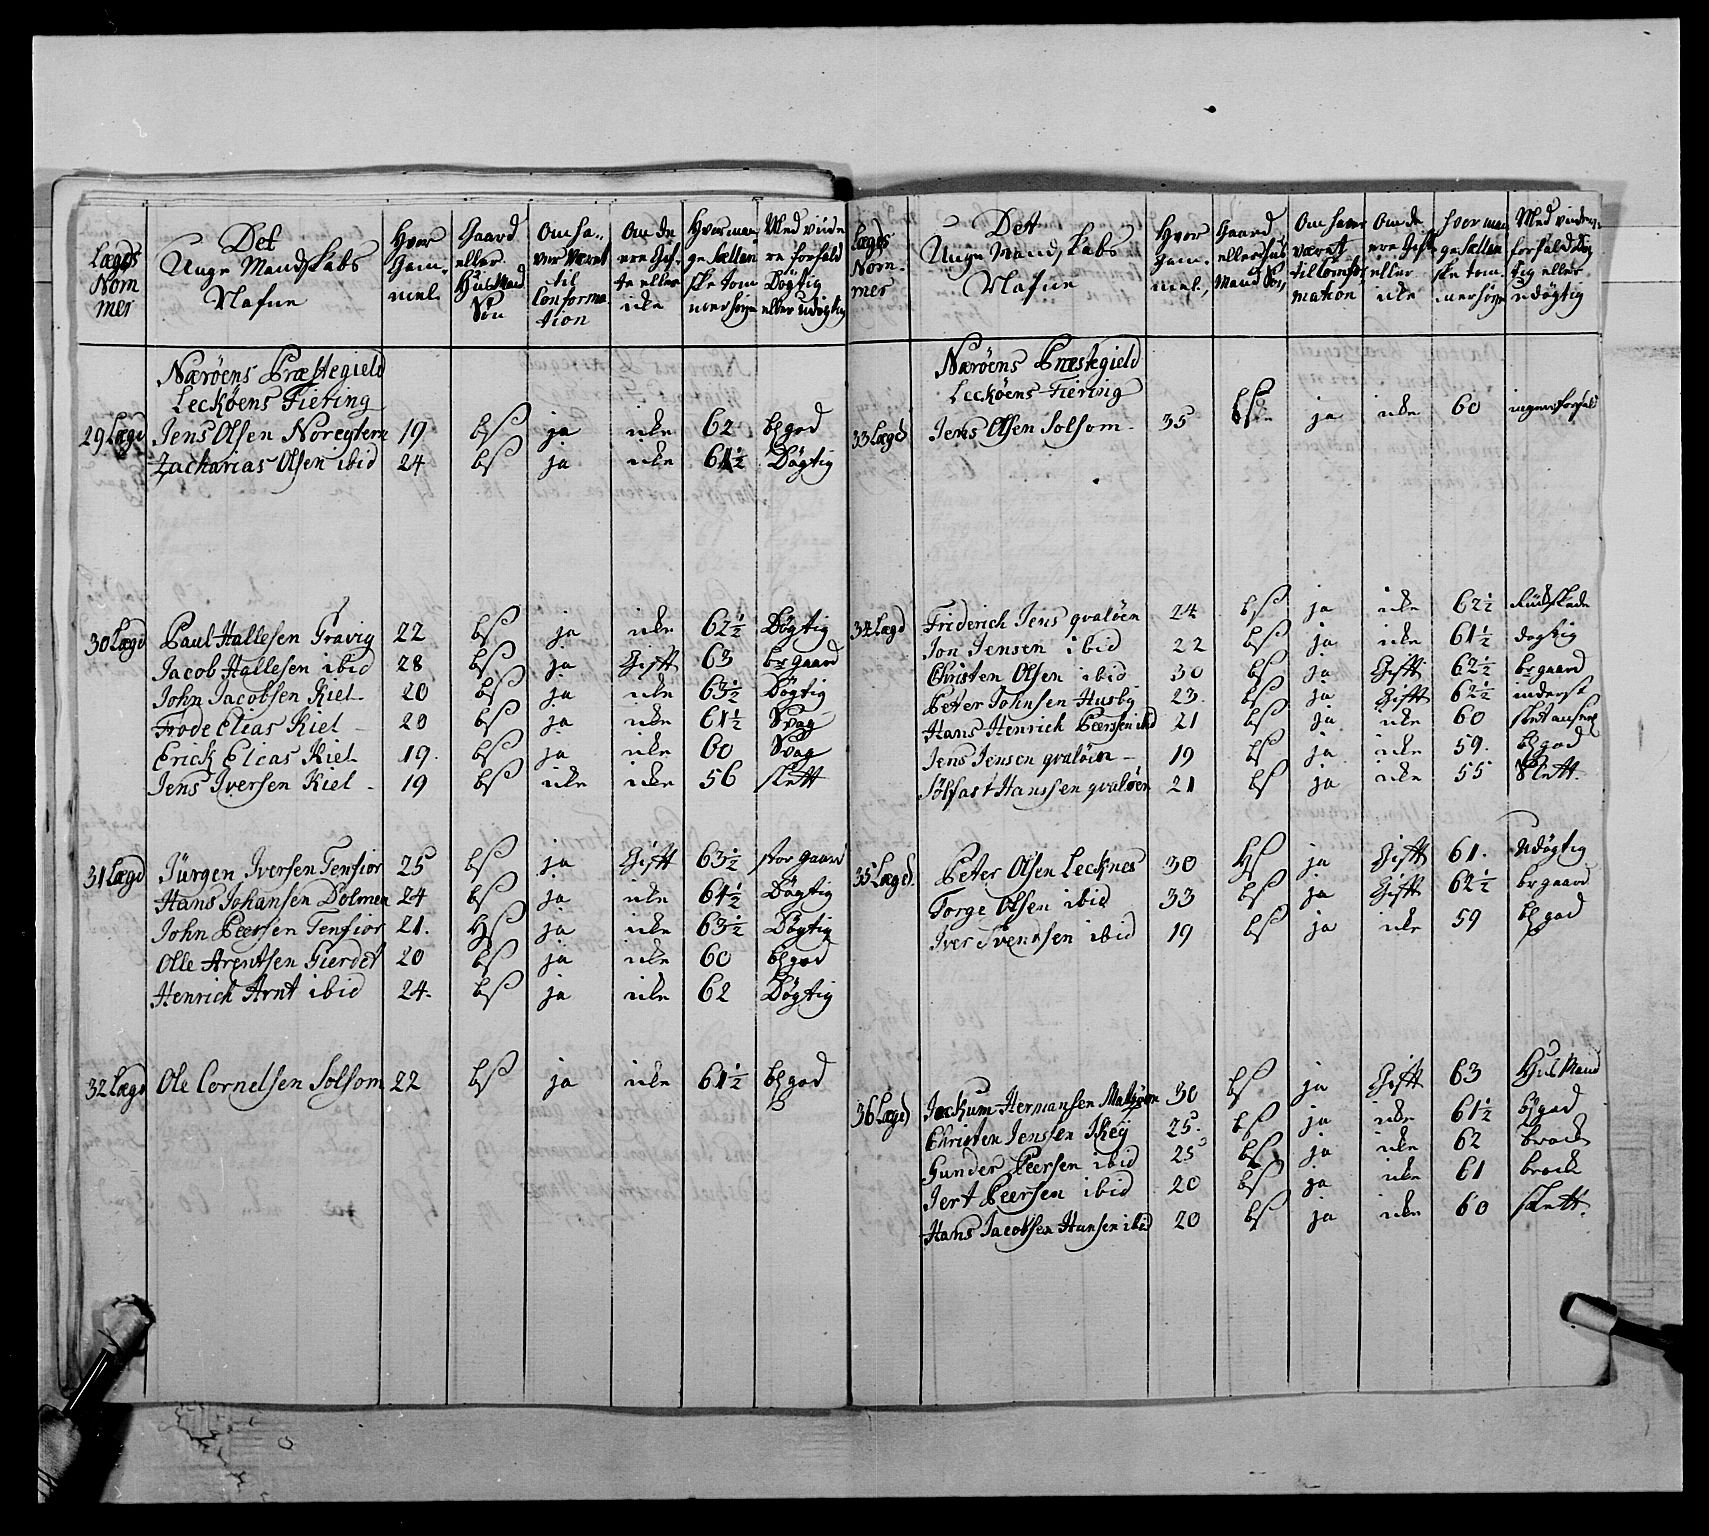 Lægds Nommer | Det Unge Mandskabs Nafne | Hvor Gammel | Gaard eller Huusmand Søn | Om ha- ver været til Conforma- tion | Om de ere Gif- te eller icke | Hvor man- ge Sællan- ske tom- mer høye | Med viide- re forfald Døgtig eller udøgtig
Nærøens Præstegield
Leckøens Fiering
29 Lægd Jens Olsen Noregtern 19 bS ja icke 62 bl god
Zacharias Olsen ibid 24 bS ja icke 61½ Døgtig
30 Lægd Paul Hallesen Fravig 22 bS ja icke 62½ Døgtig
Jacob Hallesen ibid 28 bS ja Gifft 63 br gaard
John Jacobsen Kiel 20 bS ja icke 63½ Døgtig
Frode Elias Kiel 20 bS ja icke 61½ Svag
Erick Elias Kiel 19. bS ja icke 60 Svag
Jens Iversen Kiel 19 bS icke icke 56 slett
31 Lægd Jürgen Iversen Tenfior 25 bS ja Gifft 63½ stor gaard
Hans Johansen Dolmen 24 bS ja icke 64½ Døgtig
John Peersen Tenfior 21. HS ja icke 63½ Døgtig
Olle Arentsen Gierdet 20 bS ja icke 60 bl god
Henrich Arnt ibid 24. bS ja icke 62 Døgtig
32 Lægd Ole Cornelsen Solsom 22 bS ja icke 61½ bl god
Lægds Nom- mer | Det Unge Mandskabs Nafne | Hvor Gam- mel, | Gaard eller huus Mand Søn, | Om haver været til Confor- mation | Om de ere Gift eller icke | Hvor man- ge Sællan- ske tom- mer høye | Med videre forfald Døg- tig eller udøgtig
Nærøens Præstegield
Leckøens Fiering
33 Lægd Jens Olsen Solsom 35 bS ja icke 60 ingen forfald
34 Lægd Friderich Jens qvaløen 24 bS ja icke 62½
Jon Jensen ibid 22 bS ja icke 61½ døgtig
Christen Olsen ibid 30 bS ja Gifft 62½ br gaard
Peter Johnsen Husby 23. bS ja Gifft 62½ inderst
Hans Henrich Peersen ibid 21 bS ja icke 60
Jens Jensen qvaløen 19 bS ja icke 59. bl god
Sølfast Hanssen qvaløen 21 bS ja icke 55 Slett.
35 Lægd. Peter Olsen Lecknes 30 HS ja Gifft 61. Udøgtig
Torge Olsen ibid 33 bS ja Gifft 62½ br gaard
Iver Svendsen ibid 19 bS ja icke 59 bl god
36 Lægd Jockum Hermansen 30 bS ja Gifft 63 HuusMand
Christen Jenssen Skey 25. bS ja icke 61½ bl god
Gunder Peersen ibid 25 bS ja icke 62 brock
Jert Peersen ibid 20 bS ja icke 61 brock
Hans Jacobsen Hansen ibid 20 bS ja icke 60 slett.